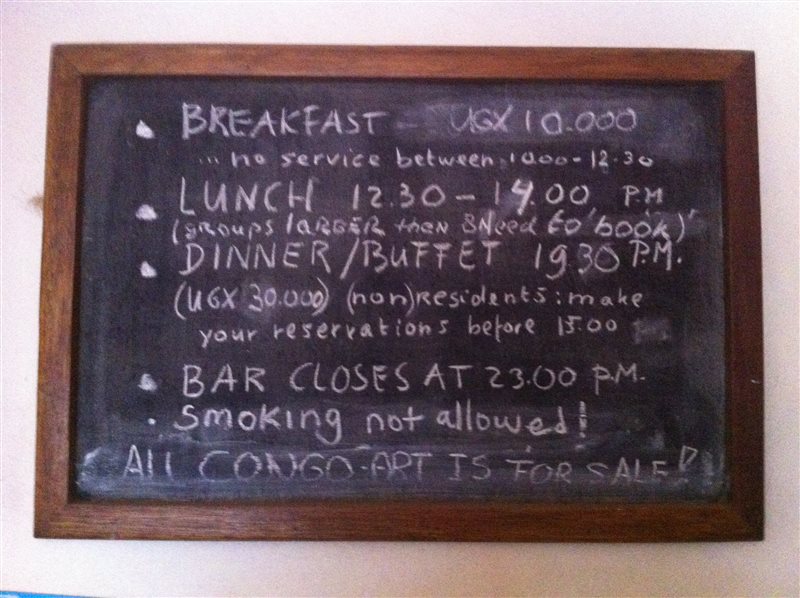 BREAKFAST - UGX 10.000
... no service between 1000 - 12.30
LUNCH 12.30 - 14.00 P.M
(groups lARGER then 8 Need to 'book')
DINNER/BUFFET 19.30 P.M.
(UGX 30.000) (non)residents: make
your reservations before 15.00
BAR CLOSES AT 23.00 P.M.
Smoking not allowed!
All CONGO-ART IS FOR SALE!